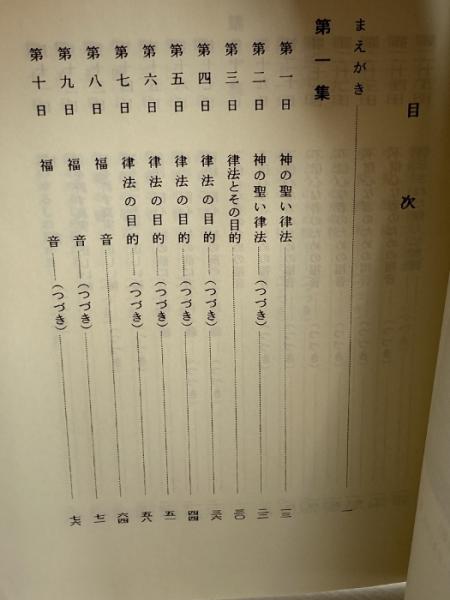 目次
まえがき 一
第一集
第一日 神の聖い律法 一三
第二日 神の聖い律法(つづき)
第三日 律法とその目的 三〇
第四日 律法の目的(つづき) 三六
第五日 律法の目的(つづき) 四四
第六日 律法の目的(つづき) 五一
第七日 律法の目的(つづき) 五八
第八日 福音 六四
第九日 福音(つづき) 七一
第十日 福音(つづき) 七六